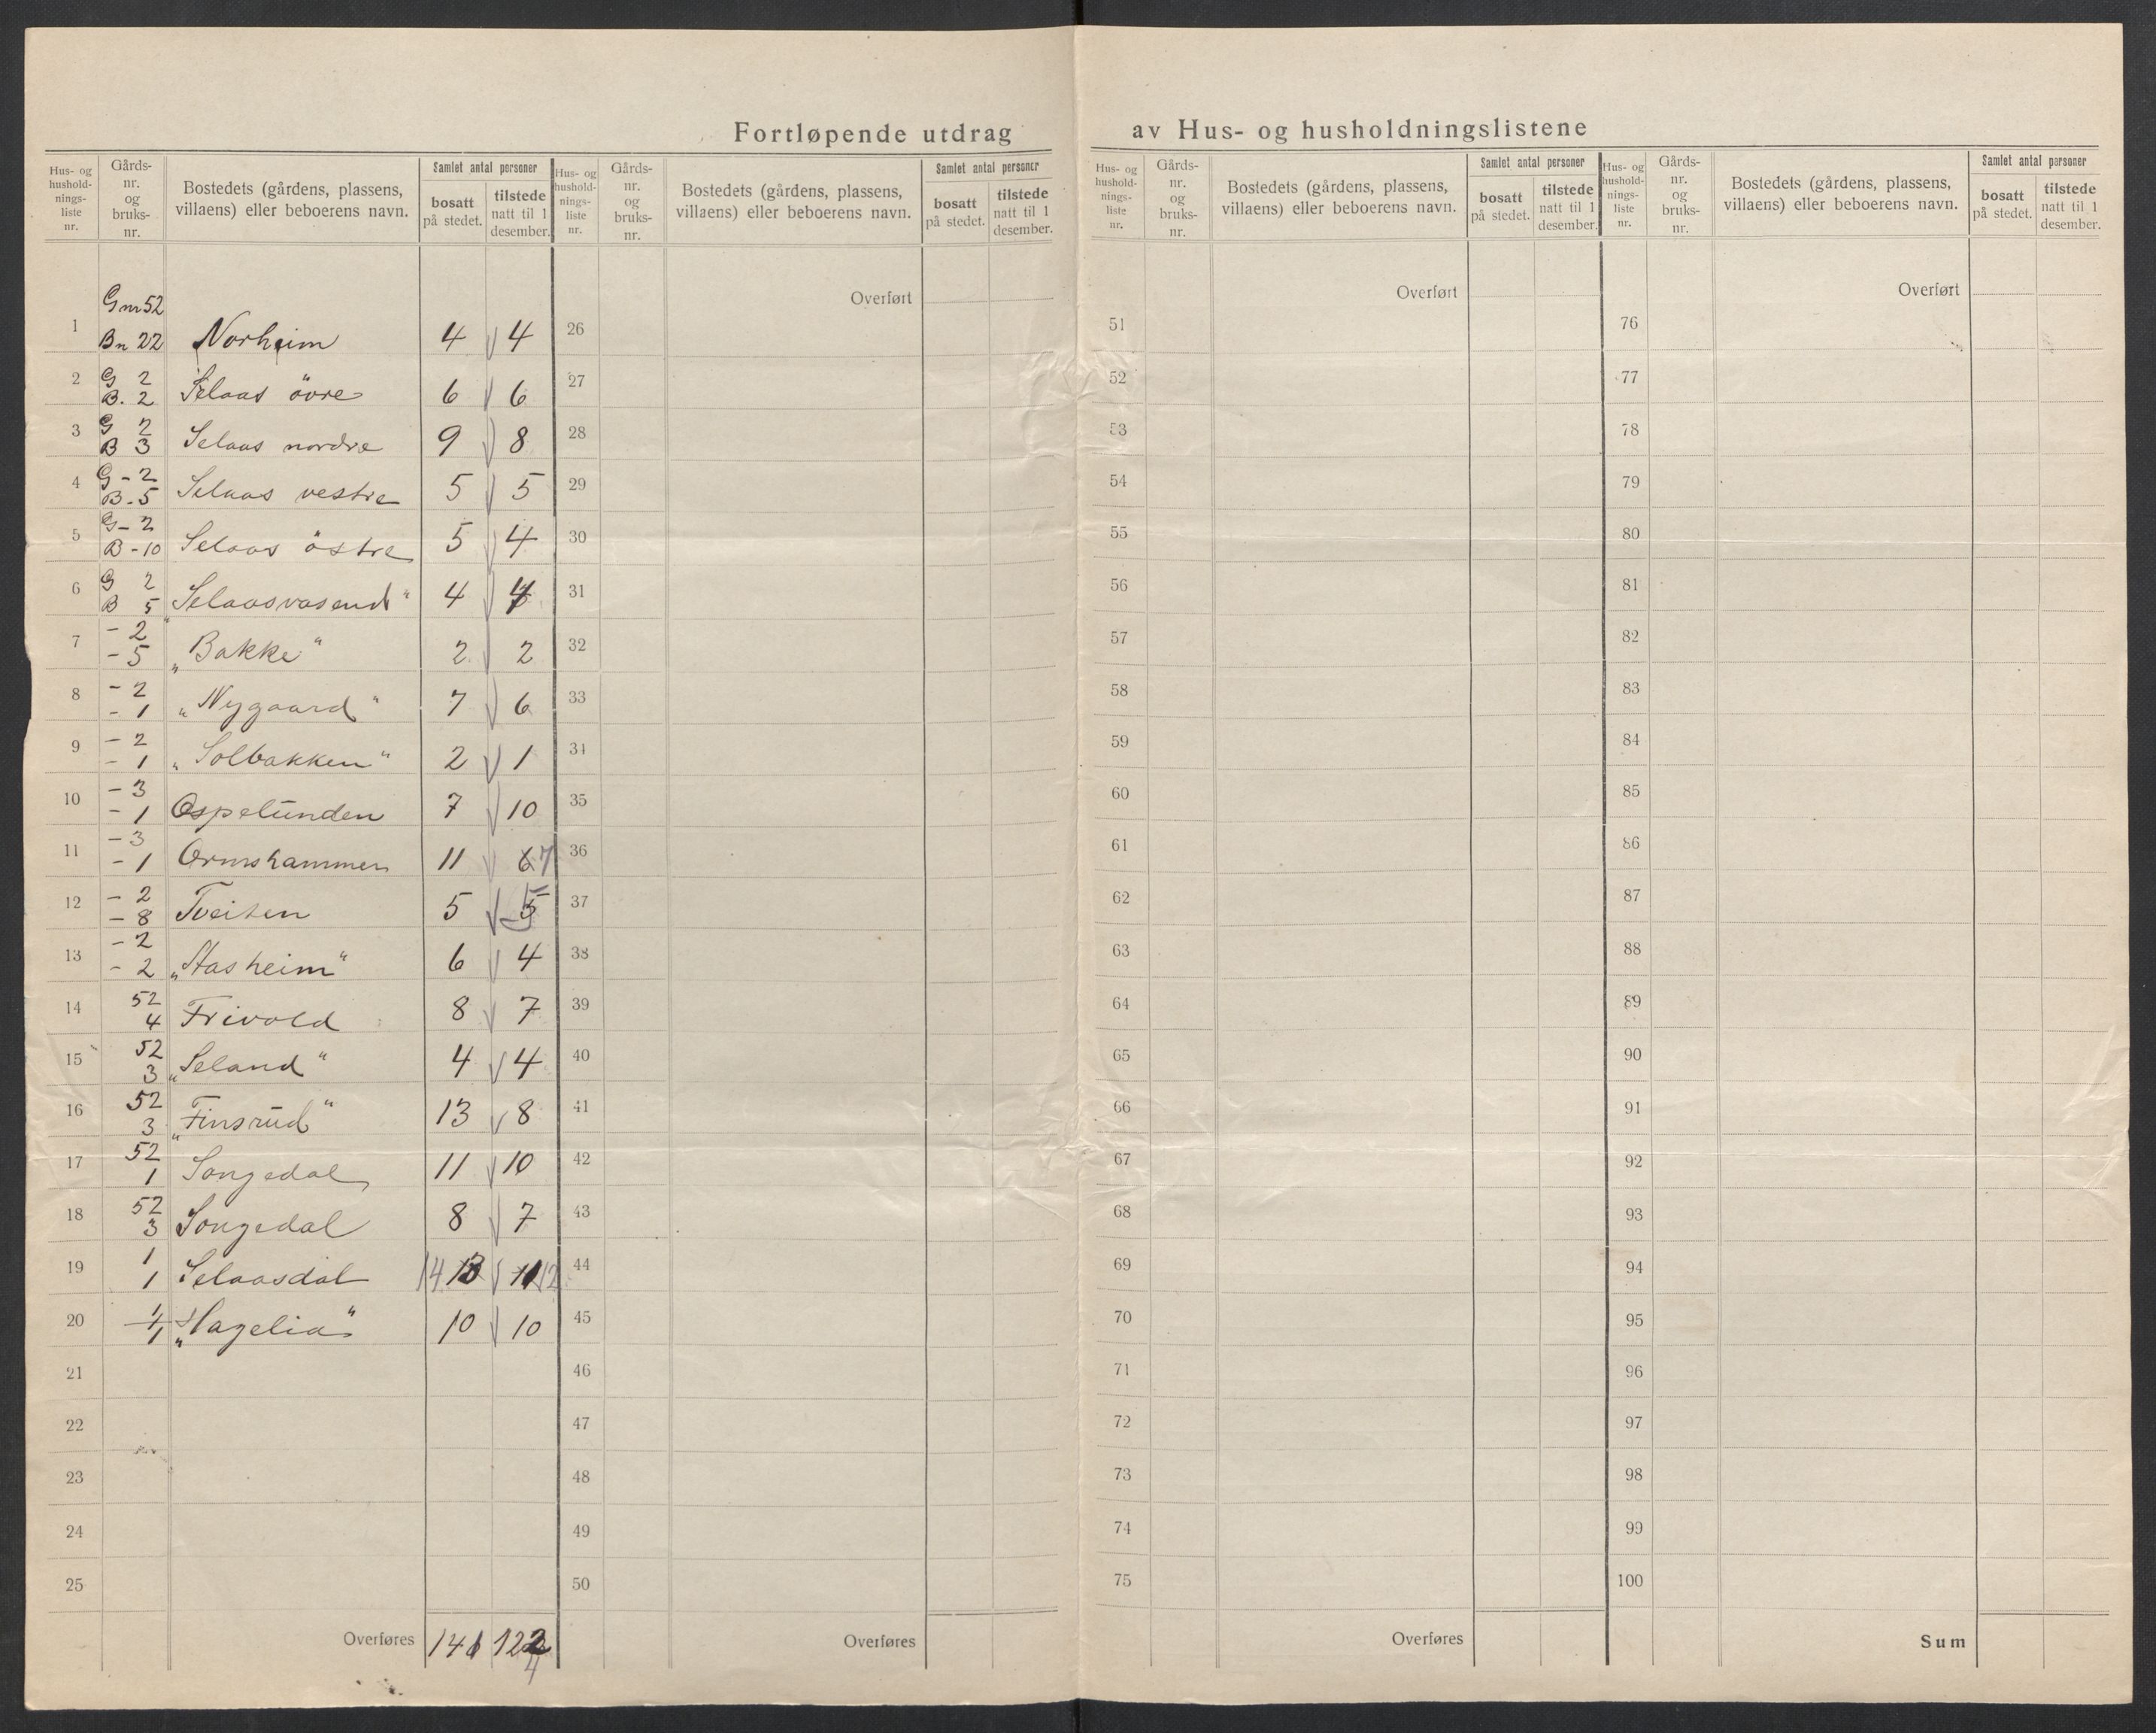 Fortløpende utdrag av Hus- og husholdningslistene
Hus- og hushold-nings-liste nr. Gårds-nr. og bruks-nr. Bostedets (gårdens, plassens, villaens) eller beboerens navn. Samlet antal personer bosatt på stedet. tilstede natt til 1 desember.
Hus- og hushold-nings-liste nr. Gårds-nr. og bruks-nr. Bostedets (gårdens, plassens, villaens) eller beboerens navn. Samlet antal personer bosatt på stedet. tilstede natt til 1 desember.
Hus- og hushold-nings-liste nr. Gårds-nr. og bruks-nr. Bostedets (gårdens, plassens, villaens) eller beboerens navn. Samlet antal personer bosatt på stedet. tilstede natt til 1 desember.
Hus- og hushold-nings-liste nr. Gårds-nr. og bruks-nr. Bostedets (gårdens, plassens, villaens) eller beboerens navn. Samlet antal personer bosatt på stedet. tilstede natt til 1 desember.
Overført Overført Overført
1 Gnr 52 Bn 22 Norheim 4 4 26 51 76
2 G 2 B. 2 Selaas övre 6 6 27 52 77
3 G 2 B 3 Selaas nordre 9 8 28 53 78
4 G - 2 B - 5 Selaas vestre 5 5 29 54 79
5 G - 2 B - 10 Selaas östre 5 4 30 55 80
6 G 2 B 5 "Selaasvasend" 4 4 31 56 81
7 - 2 - 5 „Bakke" 2 2 32 57 82
8 - 2 - 1 „Nygaard" 7 6 33 58 83
9 - 2 - 1 „Solbakken" 2 1 34 59 84
10 - 3 - 1 Ospelunden 7 10 35 60 85
11 - 3 - 1 Ormshammer 11 6 7 36 61 86
12 - 2 - 8 Tveiten 5 5 37 62 87
13 - 2 - 2 „Aasheim" 6 4 38 63 88
14 52 4 Frivold 8 7 39 64 89
15 52 3 „Seland" 4 4 40 65 90
16 52 3 „Finsrud" 13 8 41 66 91
17 52 1 Songedal 11 10 42 67 92
18 52 3 Songedal 8 7 43 68 93
19 1 1 Selaasdal 14 13 11 12 44 69 94
20 1 1 „Hagelia" 10 10 45 70 95
21 46 71 96
22 47 72 97
23 48 73 98
24 49 74 99
25 50 75 100
Overføres 141 122 4 Overføres Overføres Sum